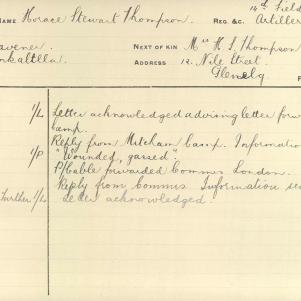 NAME Horace Stewart Thompson. REG &C. 14th Field Artiller
avener
nkaltilla. NEXT OF KIN Mrs H. S. Thompson
ADDRESS 12. Nile Street.
Glenelg
1/L Letter acknowledged advising letter forw
Camp.
Reply from Mitcham Camp. Informatio
1/P "Wounded, gassed".
P/Cable forwarded Commrs London.
Reply from Commrs Information se
Further 1/L Letter acknowledged.